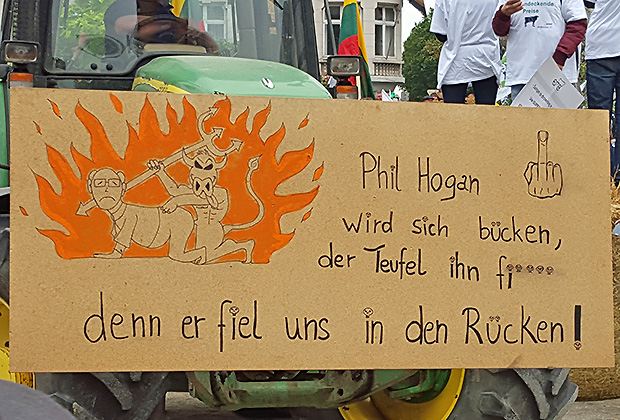 ndeckende
Preise
Phil Hogan
wird sich bücken,
der Teufel ihn fi----
denn er fiel uns in den Rücken!